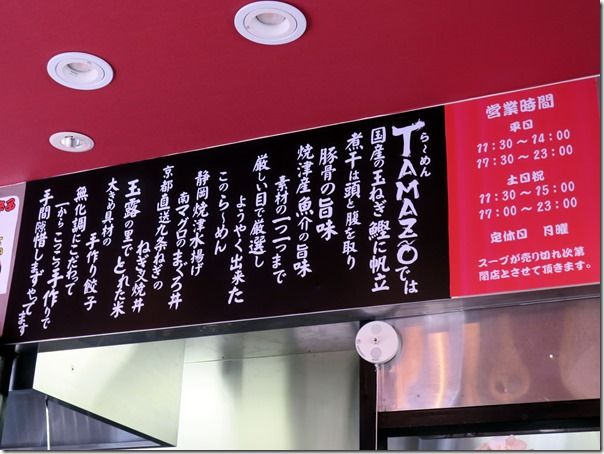 ら〜めん
TAMAZOでは
国産の玉ねぎ 鰹に帆立
煮干は頭と腹を取り
豚骨の旨味
焼津産魚介の旨味
素材の一つ一つまで
厳しい目で厳選し
ようやく出来た
このら〜めん
静岡焼津水揚げ
南マグロのまぐろ丼
京都直送九条ねぎの
ねぎ叉焼丼
玉露の里でとれた米
大きめ具材の
手作り餃子
無化調にこだわって
一からこつこつ手作りで
手間隙惜しまずやってます
営業時間
平日
11:30〜14:00
17:30〜23:00
土日祝
11:30〜15:00
17:00〜23:00
定休日 月曜
スープが売り切れ次第
閉店とさせて頂きます。